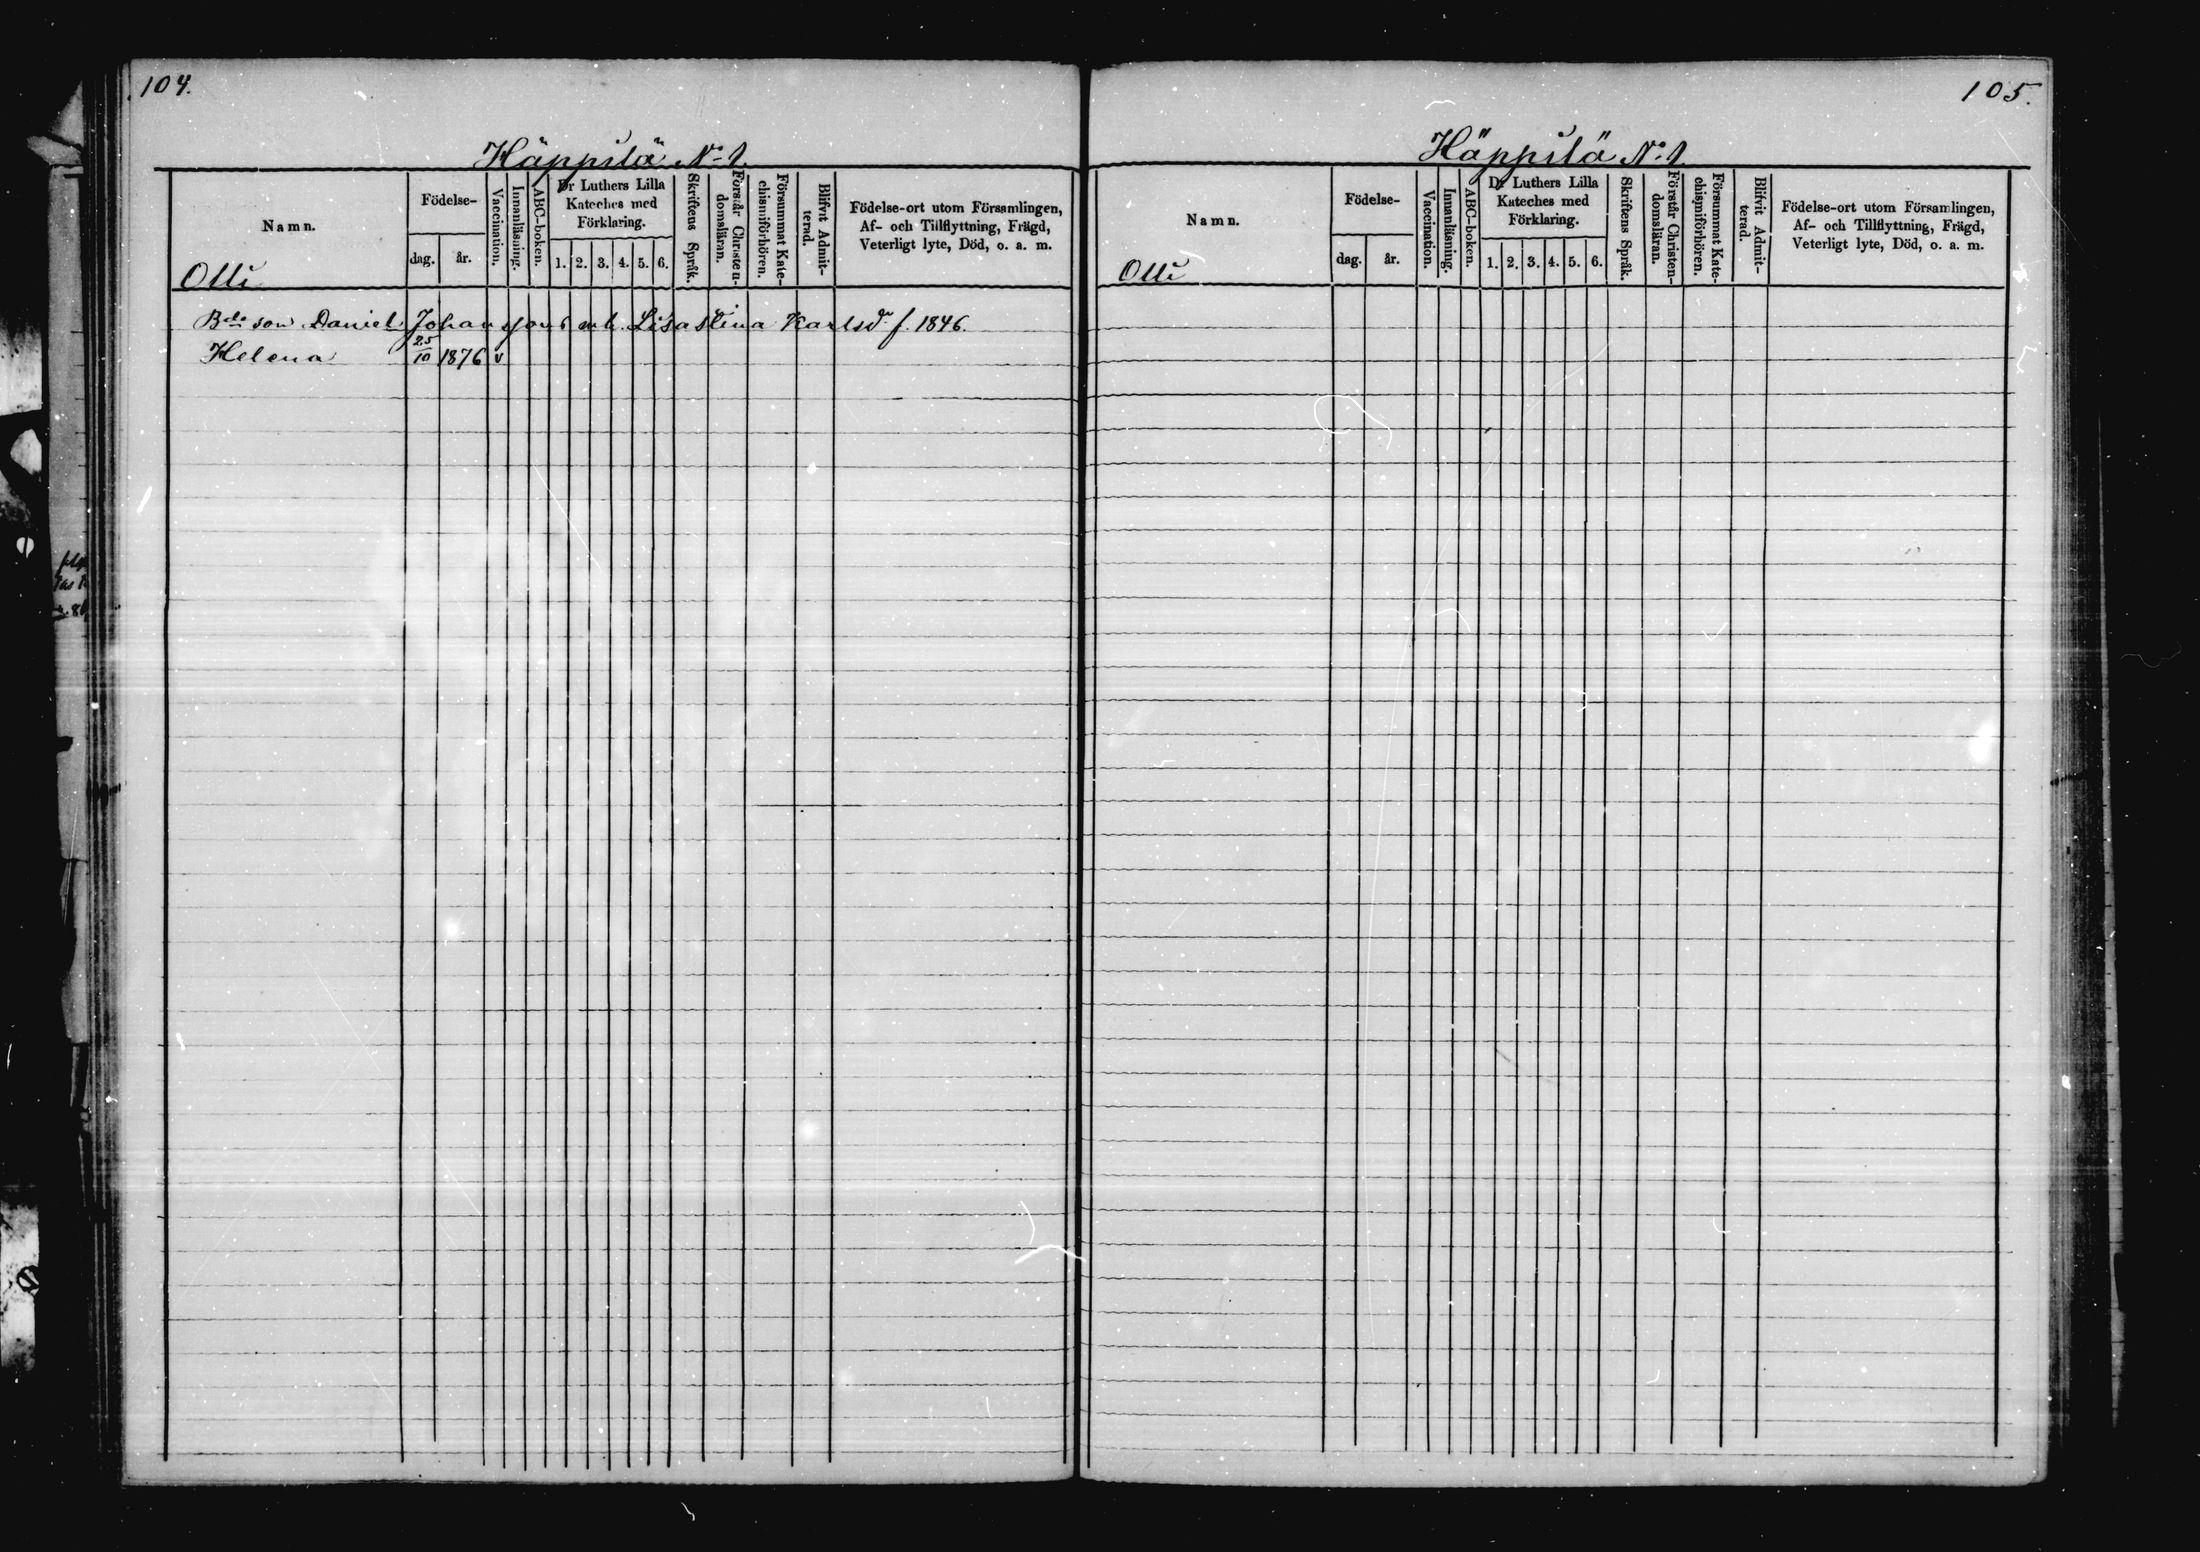 104.
Häppilä No 1.
Namn.
Födelse-
dag.
år.
Vaccination.
Innanläsning.
ABC-boken.
Dr Luthers Lilla
Kateches med
Förklaring.
1. 2. 3. 4. 5. 6.
Skriftens Språk.
Förstår Christen-
domsläran.
Försummat Kate-
chismiförhören.
Blifvit Admit-
terad.
Födelse-ort utom Församlingen,
Af- och Tillflyttning, Frägd,
Veterligt lyte, Död, o. a. m.
Olli
Bde son Daniel Johanssons enk. Lisa Stina Karlsdr f. 1846.
Helena 25/10 1876 v
105.
Häppilä No 1.
Namn.
Födelse-
dag.
år.
Vaccination.
Innanläsning.
ABC-boken.
Dr Luthers Lilla
Kateches med
Förklaring.
1. 2. 3. 4. 5. 6.
Skriftens Språk.
Förstår Christen-
domsläran.
Försummat Kate-
chismiförhören.
Blifvit Admit-
terad.
Födelse-ort utom Församlingen,
Af- och Tillflyttning, Frägd,
Veterligt lyte, Död, o. a. m.
Olli